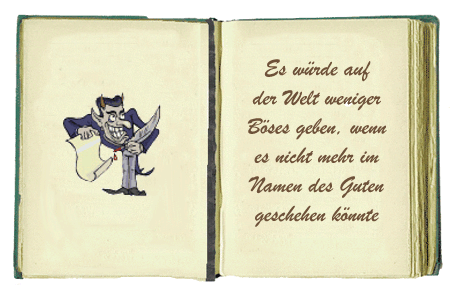 Es würde auf
der Welt weniger
Böses geben, wenn
es nicht mehr im
Namen des Guten
geschehen könnte